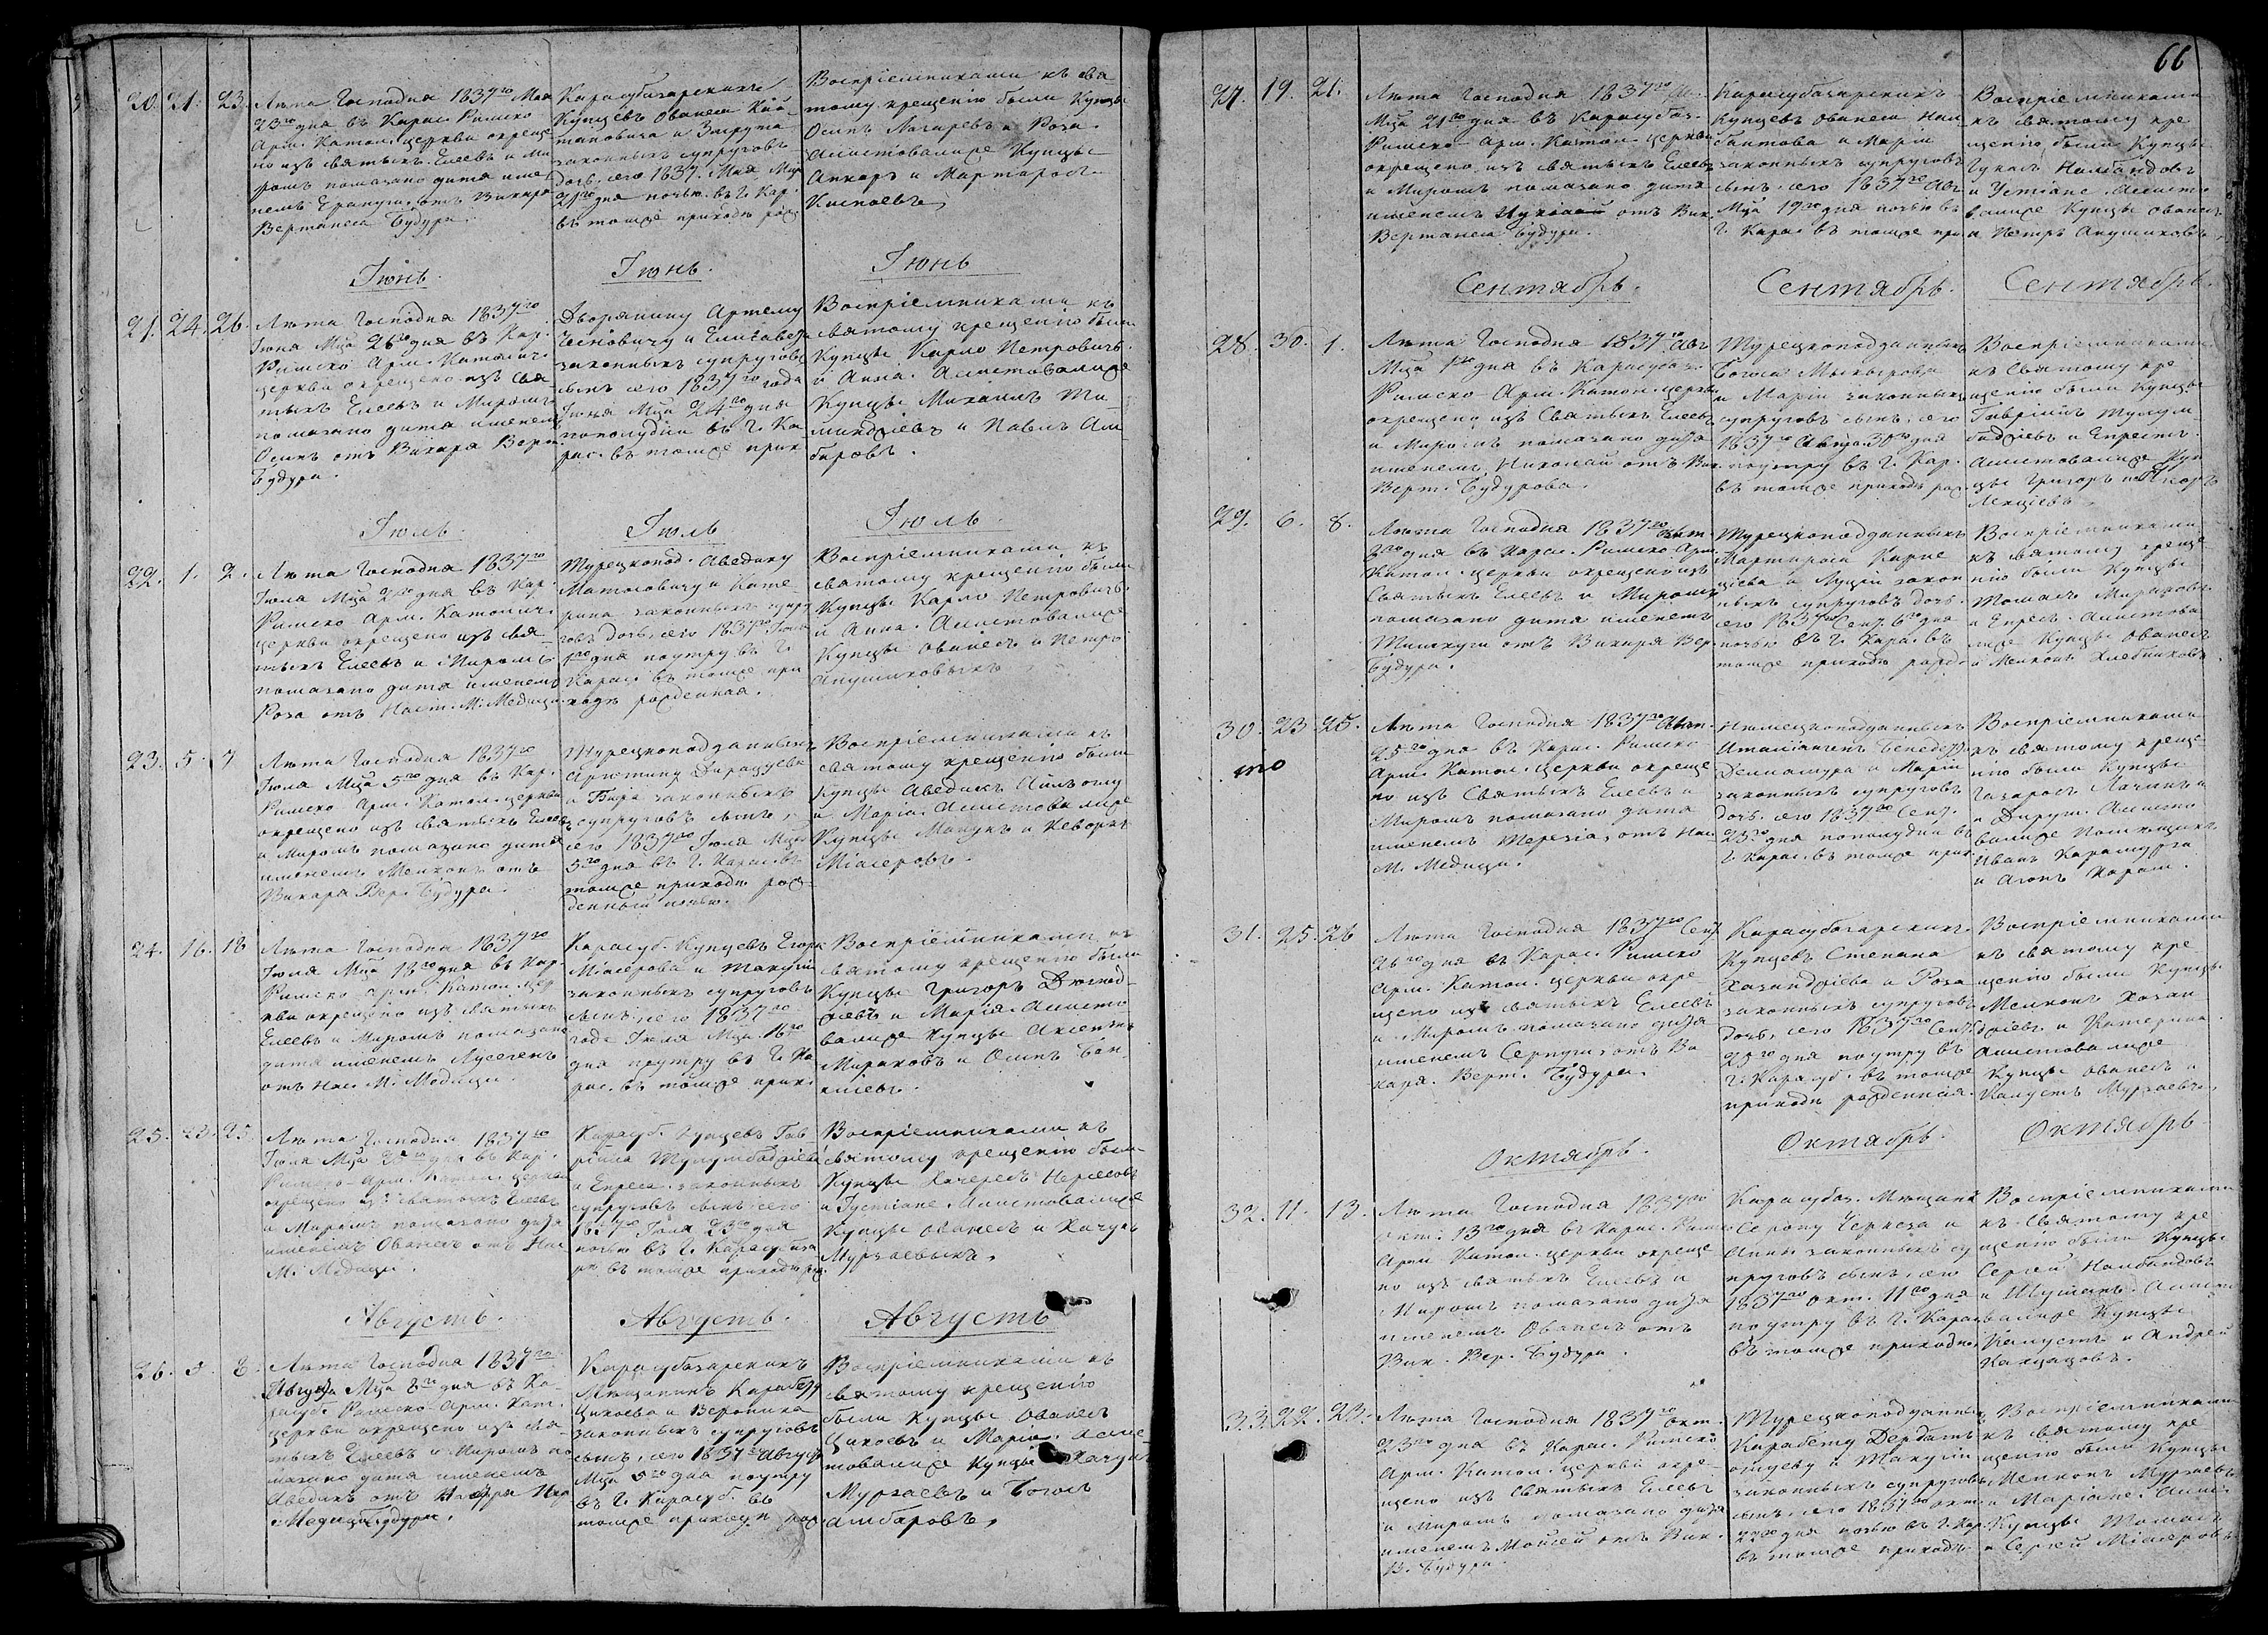 66
20. 21. 23.
Лѣта Господня 1837го Мая
23го дня въ Карас. Римско
Арм. Катол. церкви окреще
но изъ святыхъ Елеевъ и Ми
ромъ помазано дитя име
немъ отъ Викара
Вертанеса Будура.
Карасубазарскихъ
Купцевъ Ованеса
законныхъ супруговъ
дочь, сего 1837. Мая Мца
21го дня ночью въ Г. Кар.
въ томже приходѣ рожд.
Воспріемниками къ свя
тому крещенію были Купцы
Осипъ Лазаревъ и Роза.
Асистовалиже Купцы
Іюнь.
Іюнь.
Іюнь
21. 24. 26.
Лѣта Господня 1837го
Іюня Мца 26го дня въ Кар.
Римско Арм. Католич.
церкви окрещено изъ Свя-
тыхъ Елеевъ и Миромъ
помазано дитя именемъ
Осипъ отъ Викара Верт.
Будура.
Дворянину Артему
и Елисавета
законныхъ супруговъ
сынъ сего 1837го года
Іюня Мца 24го дня
пополудни въ Г. Ка
рас. въ томже прих.
Воспріемниками къ
святому крещенію были
Купцы Карло Петровичъ
и Анна. Асистовалиже
Купцы Михаилъ
и Павелъ Ам-
баровъ.
Іюль.
Іюль
Іюль.
22. 1. 2.
Лѣта Господня 1837го
Іюля Мца 2го дня въ Кар.
Римско Арм. Католич.
церкви окрещено изъ Свя-
тыхъ Елеевъ и Миромъ
помазано дитя именемъ
Роза отъ Наст. М. Медици.
Турецкопод. Аведику
Матосовичу и Кате
рина законныхъ супру
говъ дочь, сего 1837го Іюля
1го дня поутру въ Г.
Карас. въ томже при
ходѣ рожденная.
Воспріемниками къ
святому крещенію были
Купцы Карло Петровичъ
и Анна. Асистовалиже
Купцы Ованесъ и Петръ
Акушиковыхъ
23. 5. 7
Лѣта Господня 1837го
Іюля Мца 5го дня въ Кар.
Римско Арм. Катол. церкви
окрещено изъ святыхъ Елеевъ
и Миромъ помазано дитя
именемъ Мелконъ отъ
Викара Вер. Будура.
Турецкоподданныхъ
законныхъ
супруговъ сынъ,
сего 1837го Іюля Мца
5го дня въ Г. Карас. въ
томже приходѣ рож-
денный ночью.
Воспріемниками къ
святому крещенію были
Купцы Аведикъ
и Марія. Асистовалиже
Купцы Манукъ и Кеворкъ
Місеровъ.
24. 16. 18
Лѣта Господня 1837го
Іюля Мца 18го дня въ Кар.
Римско Арм. Катол. цер
кви окрещено изъ святыхъ
Елеевъ и Миромъ помазано
дитя именемъ Лусегенъ
отъ Нас. М. Медици.
Карасуб. Купцевъ Егора
Місерова и Такугіи
законныхъ супруговъ
сынъ, сего 1837го
года Іюля Мца 16го
дня поутру въ Г. Ка
рас. въ томже прих.
Воспріемниками къ
святому крещенію были
Купцы Григоръ
и Марія. Асисто
валиже Купцы Аксентъ
Мираковъ и Осипъ
25. 23. 25.
Лѣта Господня 1837го
Іюля Мца дня въ Кар.
Римско-Арм. Катол. церкви
окрещено изъ святыхъ Елеевъ
и Миромъ помазано дитя
именемъ Ованесъ отъ Нас.
М. Медици.
Карасуб. Купцевъ Гав
ріила
и Епресіи законныхъ
супруговъ сынъ сего
1837го Іюля 23го дня
ночью въ Г. Карасубаза
рѣ въ томже приходѣ рож.
Воспріемниками къ
святому крещенію были
Купцы Качересъ Нерсесовъ
и Густіане. Асистовалиже
Купцы Ованесъ и Хачукъ
Мурзаевыхъ.
Августъ.
Августъ.
Августъ
26. 5. 8.
Лѣта Господня 1837го
Августа Мца 8го дня въ Ка-
расуб. Римско-Арм. Кат.
церкви окрещено изъ Свя-
тыхъ Елеевъ и Миромъ по
мазано дитя именемъ
Аведикъ отъ
Карасубазарскихъ
Мещанинъ Карабету
Цихоева и Вероника
законныхъ супруговъ
сынъ, сего 1837го Августа
Мца 5го дня поутру
въ Г. Карасуб. въ
томже приходѣ рож.
Воспріемниками къ
святому крещенію
были Купцы Ованесъ
Цихоевъ и Марія. Асис-
товалиже Купцы Хачукъ
Мурзаевъ и Богосъ
Амбаровъ.
27. 19. 21.
Лѣта Господня 1837го Ав.
Мца 21го дня въ Карасубаз.
Римско-Арм. Катол. церкви
окрещено изъ святыхъ Елеевъ
и Миромъ помазано дитя
именемъ отъ Вик.
Вертанеса Будура.
Карасубазарскихъ
Купцевъ Ованеса Нал
бантова и Маріи
законныхъ супруговъ
сынъ, сего 1837го Авг.
Мца 19го дня ночью въ
Г. Карас. въ томже при.
Воспріемниками
къ святому кре
щенію были Купцы
Гукасъ Налбандовъ
и Устіане. Асисто
валиже Купцы Ованесъ
и Петръ Акушиковъ.
Сентябрь.
Сентябрь.
Сентябрь.
28. 30. 1.
Лѣта Господня 1837го Авг
Мца 1го дня въ Карасубаз.
Римско Арм. Катол. церкви
окрещено изъ Святыхъ Елеевъ
и Миромъ помазано дитя
именемъ Николай отъ Вик.
Верт. Будурова.
Турецкоподданныхъ
Богоса Мкыртова
и Маріи законныхъ
супруговъ сынъ, сего
1837го Августа 30го дня
поутру въ Г. Кар.
въ томже приходѣ рож.
Воспріемниками
къ Святому кре
щенію были Купцы
Гавріилъ
и Епресіе.
Асистовалиже Куп
цы Григоръ
29. 6. 8.
Лѣта Господня 1837го
8го дня въ Карас. Римско-Арм.
Катол. церкви окрещено изъ
Святыхъ Елеевъ и Миромъ
помазано дитя именемъ
отъ Викара Вер.
Будура.
Турецкоподданныхъ
Мартироса
и Луціи закон
ныхъ супруговъ дочь.
сего 1837го Сент. 6го дня
ночью въ Г. Карас. въ
томже приходѣ рожд.
Воспріемниками
къ святому креще
нію были Купцы
Томасъ Мираковъ
и Епрес. Асистова
лиже Купцы Ованесъ
и Мелконъ Хлебниковъ.
30. 23. 25.
то
Лѣта Господня 1837го
25го дня въ Карас. Римско
Арм. Катол. церкви окреще
но изъ Святыхъ Елеевъ и
Миромъ помазано дитя
именемъ Терезіа, отъ Нас.
М. Медици.
Нѣмецкоподданныхъ
Италіанцевъ
и Маріи
законныхъ супруговъ
дочь, сего 1837го Сент.
23го дня пополудни въ
Г. Карас. въ томже прих.
Воспріемниками
къ святому креще
нію были Купцы
Газаросъ
Асисто
валиже Помѣщикъ
Иванъ Карамурза
31. 25. 26
Лѣта Господня 1837го Сент
26го дня въ Карас. Римско
Арм. Катол. церкви окре-
щено изъ святыхъ Елеевъ
и Миромъ помазано дитя
именемъ Серпугіа отъ Ви
кара Верт. Будура.
Карасубазарскихъ
Купцевъ Степана
Казанджіева и Роза
законныхъ супруговъ
дочь, сего 1837го Сент.
25го дня поутру въ
Г. Карасуб. въ томже
приходѣ рожденная.
Воспріемниками
къ святому кре
щенію были Купцы
Мелконъ Казан
джіевъ и Катерина.
Асистовалиже
Купцы Ованесъ и
Капустъ Мурзаевъ.
Октябрь.
Октябрь.
Октябрь
32. 11. 13.
Лѣта Господня 1837го
Окт. 13го дня въ Карас. Римс.
Арм. Катол. церкви окреще-
но изъ святыхъ Елеевъ и
Миромъ помазано дитя
именемъ Ованесъ отъ
Вик. Вер. Будура.
Карасубаз. Мещанъ
Серопу Черкеза и
Анны законныхъ су
пруговъ сынъ, сего
1837го Окт. 11го дня
поутру въ Г. Карас.
въ томже приходѣ.
Воспріемниками
къ святому кре
щенію были Купцы
Сергей Налбандовъ
и Шушанъ. Асисто
валиже Купцы
Капустъ и Андрей
33. 22. 23.
Лѣта Господня 1837го Окт.
23го дня въ Карас. Римско
Арм. Катол. церкви окре-
щено изъ Святыхъ Елеевъ
и Миромъ помазано дитя
именемъ Моисей отъ Вик.
В. Будура.
Турецкоподданныхъ
Карабету
и Такугіи
законныхъ супруговъ
сынъ, сего 1837го Окт.
22го дня ночью въ Г. Кар.
въ томже приходѣ
Воспріемниками
къ святому кре
щенію были Купцы
Мелконъ Мурзаевъ
и Маріане. Асис.
Купцы Томасъ
и Сергей Місеровъ